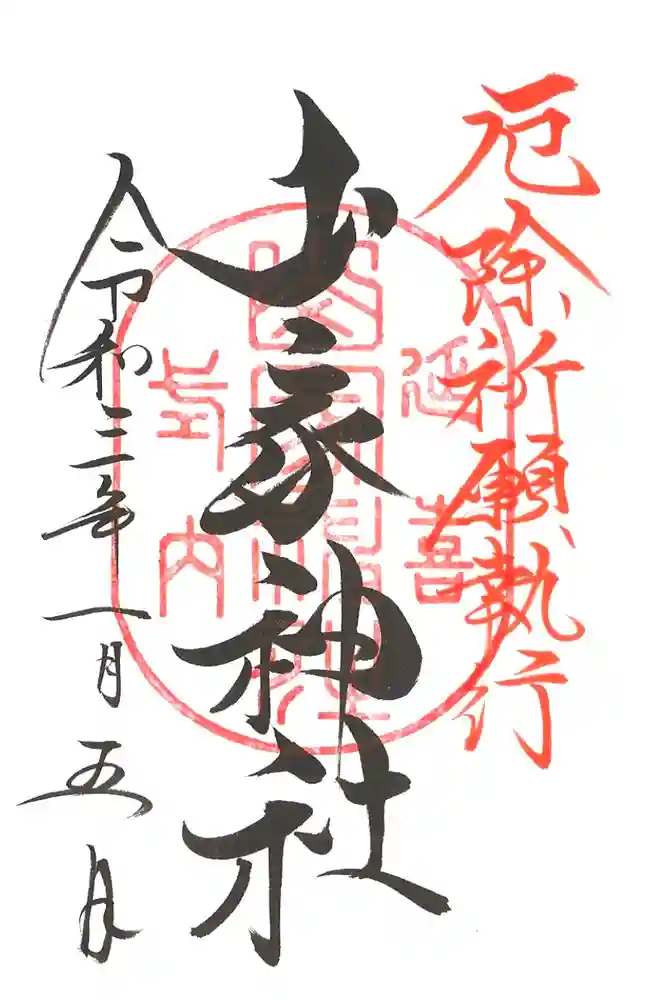 厄除祈願執行
山家神社
延喜
式内
山家神社
令和三年一月五日